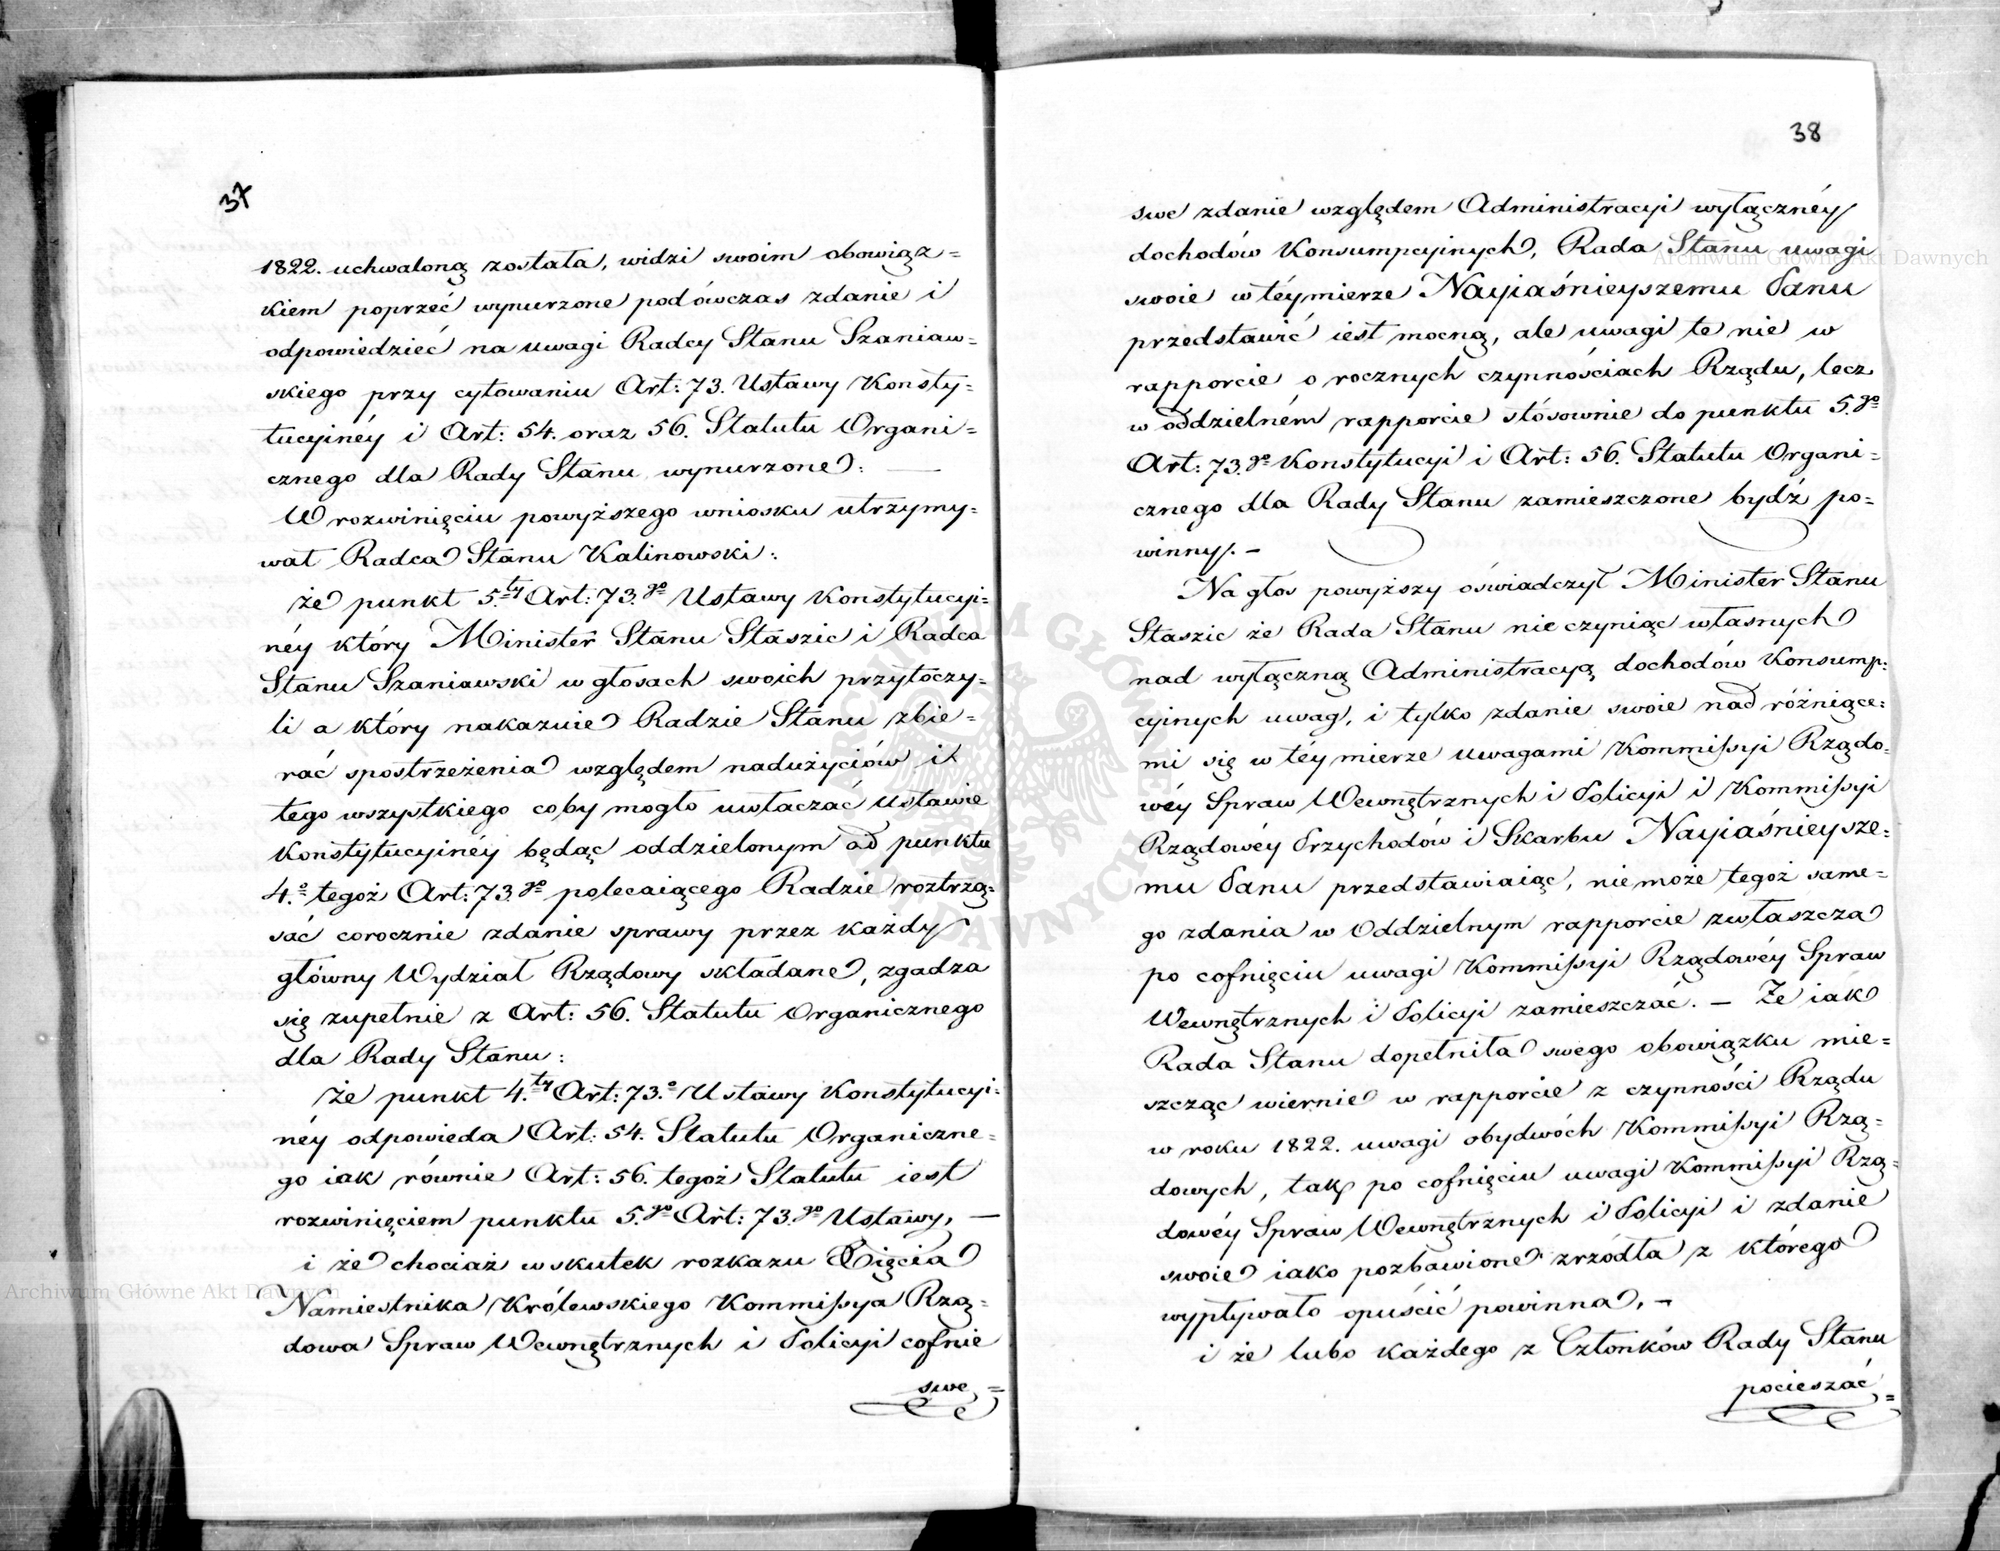 37
1822. uchwaloną została, widzi swoim obowiąz=
kiem poprzeć wynurzone podówczas zdanie i
odpowiedzieć na uwagi Radcy Stanu Szaniaw=
skiego przy cytowaniu Art: 73. Ustawy Konsty=
tucyinéy i Art: 54. oraz 56. Statutu Organi=
cznego dla Rady Stanu wynurzone: —
W rozwinięciu powyższego wniosku utrzymy=
wał Radca Stanu Kalinowski:
że punkt 5.ty Art: 73.go Ustawy Konstytucyi=
néy który Minister Stanu Staszic i Radca
Stanu Szaniawski w głosach swoich przytoczy=
li a który nakazuie Radzie Stanu zbie=
rać spostrzeżenia względem nadużyciów i
tego wszystkiego coby mogło uwłaczać Ustawie
Konstytucyinéy będąc oddzielonym od punktu
4.o tegoż Art: 73.go polecaiącego Radzie roztrzą=
sać corocznie zdanie sprawy przez każdy
główny Wydział Rządowy składane, zgadza
się zupełnie z Art: 56. Statutu Organicznego
dla Rady Stanu:
Że punkt 4.ty Art: 73.o Ustawy Konstytucyi=
néy odpowieda Art: 54. Statutu Organiczne=
go iak równie Art: 56. tegoż Statutu iest
rozwinięciem punktu 5.go Art: 73.go Ustawy, —
i że chociaż wskutek rozkazu Xięcia
Namiestnika Królewskiego Kommissya Rzą=
dowa Spraw Wewnętrznych i Policyi cofnie
swe =
38
swe zdanie względem Administracyi wyłącznéy
dochodów Konsumpcyinych, Rada Stanu uwagi
swoie w téy mierze Nayiaśnieyszemu Panu
przedstawić iest mocną, ale uwagi te nie w
rapporcie o rocznych czynnościach Rządu, lecz
w oddzielném rapporcie stósownie do punktu 5.go
Art: 73.go Konstytucyi i Art: 56. Statutu Organi=
cznego dla Rady Stanu zamieszczone bydź po=
winny. —
Na głos powyższy oświadczył Minister Stanu
Staszic że Rada Stanu nie czyniąc własnych
nad wyłączną Administracyą dochodów Konsump=
cyinych uwag, i tylko zdanie swoie nad różniące=
mi się w téy mierze uwagami Kommissyi Rządo=
wéy Spraw Wewnętrznych i Policyi i Kommissyi
Rządowéy Przychodów i Skarbu Nayiaśnieysze=
mu Panu przedstawiaiąc, nie może tegoż same=
go zdania w Oddzielnym rapporcie zwłaszcza
po cofnięciu uwagi Kommissyi Rządowéy Spraw
Wewnętrznych i Policyi zamieszczać. — Że iak
Rada Stanu dopełniła swego obowiązku mie=
szcząc wiernie w rapporcie z czynności Rządu
w roku 1822. uwagi obydwóch Kommissyi Rzą=
dowych, tak po cofnięciu uwagi Kommissyi Rzą=
dowéy Spraw Wewnętrznych i Policyi i zdanie
swoie iako pozbawione zrzódła z którego
wypływało opuścić powinna, —
i że lubo każdego z Członków Rady Stanu
pocieszać =
Archiwum Główne Akt Dawnych
Archiwum Główne Akt Dawnych
ARCHIWUM GŁÓWNE AKT DAWNYCH